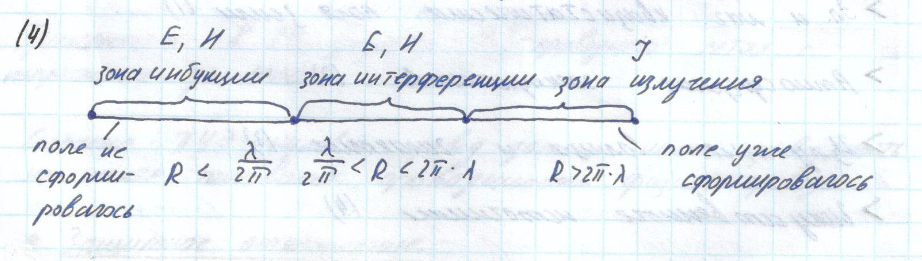 (4) E, H E, H J
зона индукции зона интерференции зона излучения
поле не сформи- ровалось R < λ/2π λ/2π < R < 2π·λ R > 2π·λ поле уже сформировалось